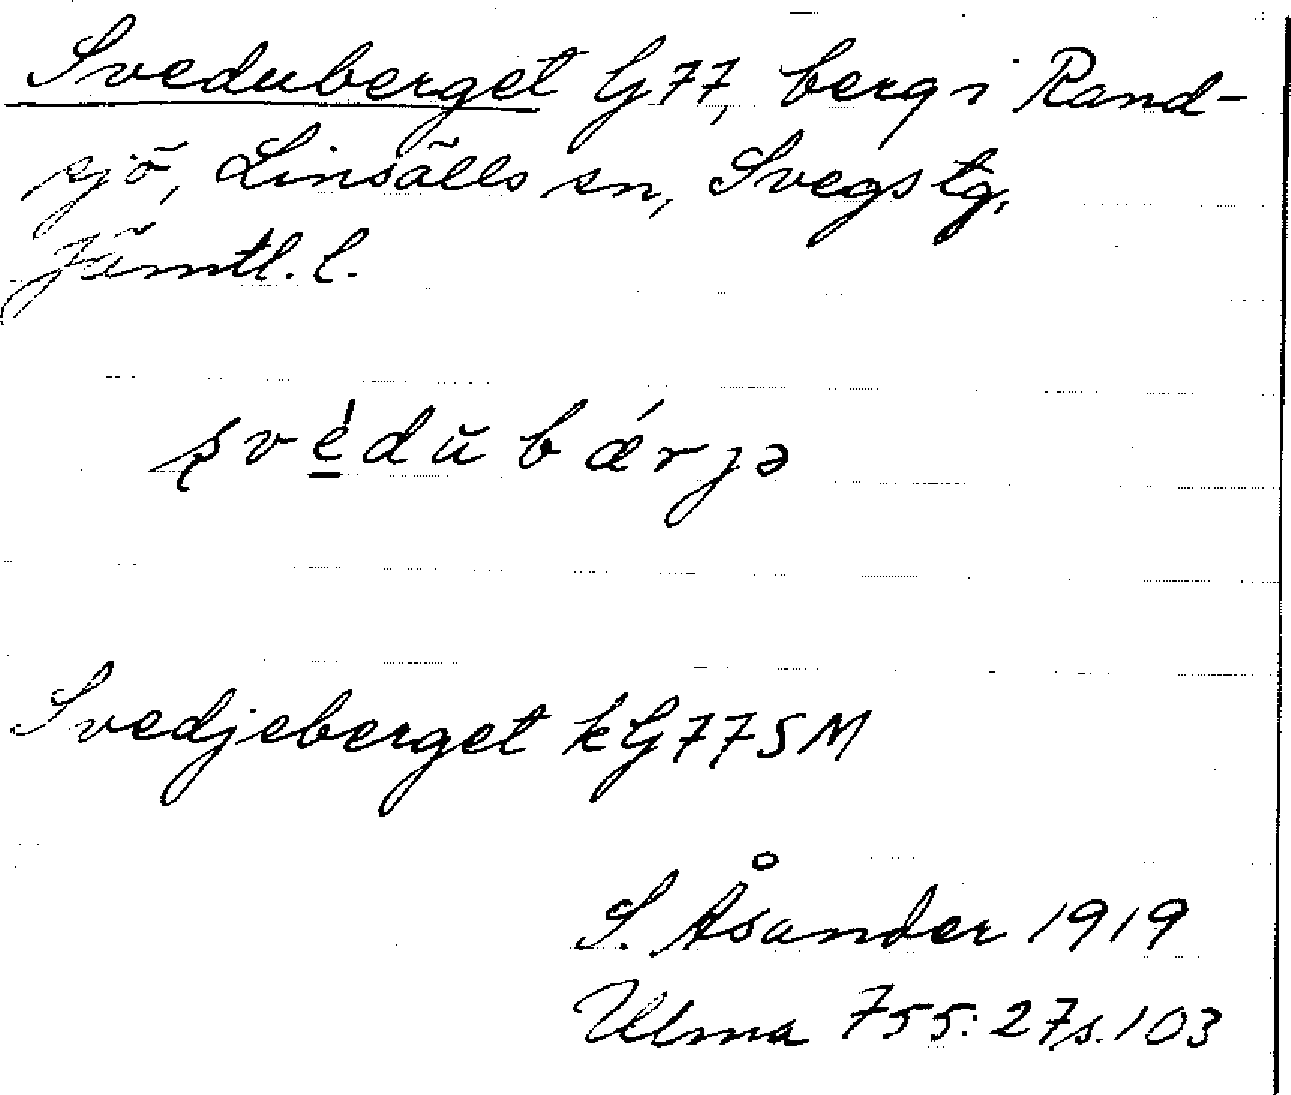 Sveduberget G77, berg i Rand-
sjö, Linsälls sn, Svegs tg,
Jämtl. l.
svédŭ bǽrjə
Svedjeberget kG77SM
S. Åsander 1919
Ulma 755:27s.103